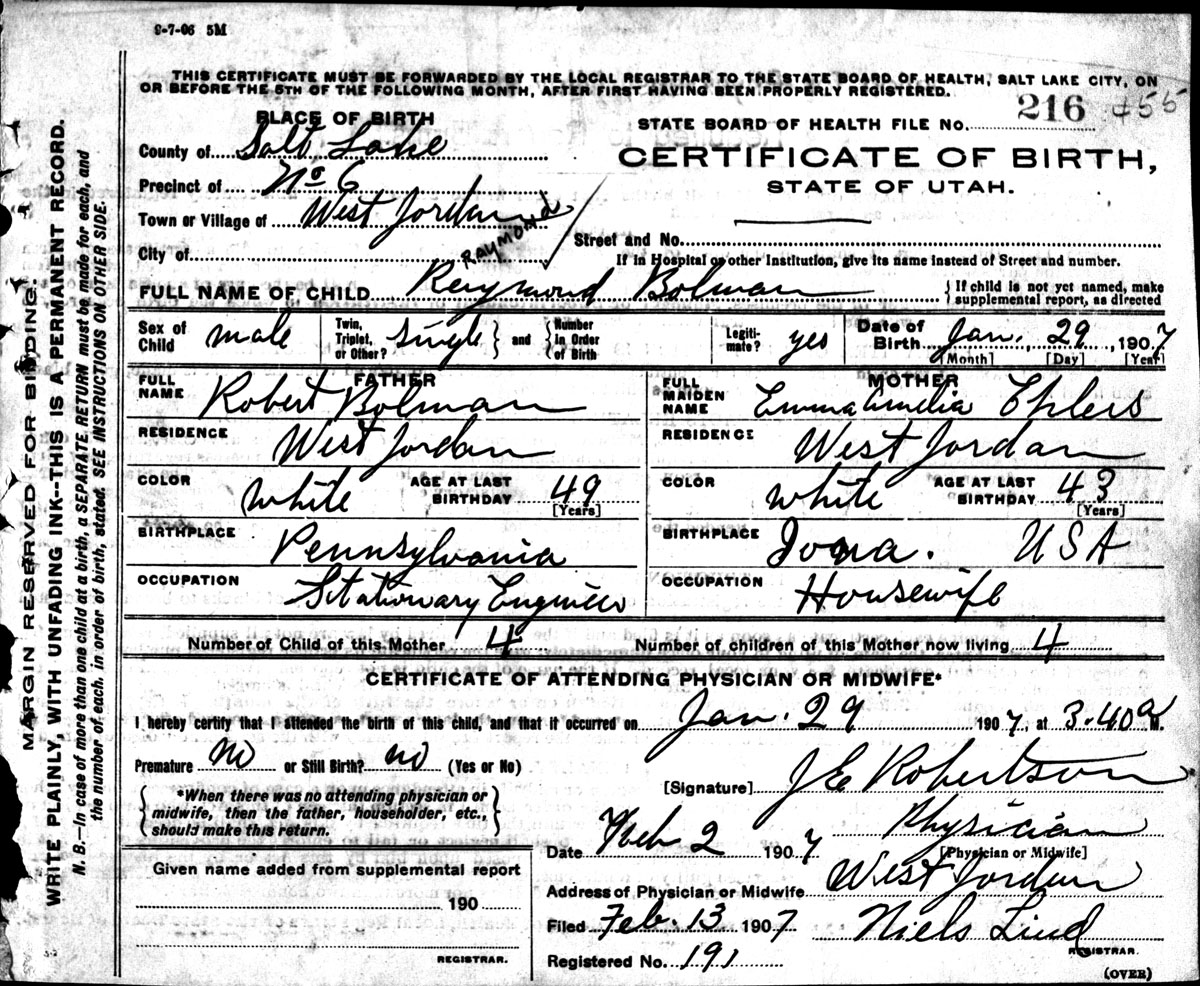 9-7-06 5M
THIS CERTIFICATE MUST BE FORWARDED BY THE LOCAL REGISTRAR TO THE STATE BOARD OF HEALTH, SALT LAKE CITY, ON
OR BEFORE THE 5TH OF THE FOLLOWING MONTH, AFTER FIRST HAVING BEEN PROPERLY REGISTERED.
PLACE OF BIRTH
STATE BOARD OF HEALTH FILE No. 216 455
County of Salt Lake
CERTIFICATE OF BIRTH,
STATE OF UTAH.
Precinct of No 6
Town or Village of West Jordan
City of
Street and No.
If in Hospital or other Institution, give its name instead of Street and number.
RAYMOND
FULL NAME OF CHILD Raymond Bolman
{ If child is not yet named, make
supplemental report, as directed
Sex of Child male
Twin, Triplet, or Other? single } and { Number In Order of Birth
Legitimate? yes
Date of Birth Jan. 29, 1907
[Month] [Day] [Year]
FATHER
FULL NAME Robert Bolman
RESIDENCE West Jordan
COLOR white AGE AT LAST BIRTHDAY 49
[Years]
BIRTHPLACE Pennsylvania
OCCUPATION Stationary Engineer
MOTHER
FULL MAIDEN NAME Emma Amelia Ehlers
RESIDENCE West Jordan
COLOR white AGE AT LAST BIRTHDAY 43
[Years]
BIRTHPLACE Iowa. USA
OCCUPATION Housewife
Number of Child of this Mother 4 Number of children of this Mother now living 4
CERTIFICATE OF ATTENDING PHYSICIAN OR MIDWIFE*
I hereby certify that I attended the birth of this child, and that it occurred on Jan. 29 1907, at 3.40 a M.
Premature No or Still Birth? no (Yes or No)
[Signature] J E Robertson
{ *When there was no attending physician or
midwife, then the father, householder, etc.,
should make this return. }
Physician
[Physician or Midwife]
Date Feb 2 1907
Address of Physician or Midwife West Jordan
Filed Feb. 13 1907 Niels Lind
REGISTRAR.
Registered No. 191
(OVER)
Given name added from supplemental report
190
REGISTRAR.
MARGIN RESERVED FOR BINDING.
WRITE PLAINLY, WITH UNFADING INK--THIS IS A PERMANENT RECORD.
N. B.—In case of more than one child at a birth, a SEPARATE RETURN must be made for each, and
the number of each, in order of birth, stated. SEE INSTRUCTIONS ON OTHER SIDE.